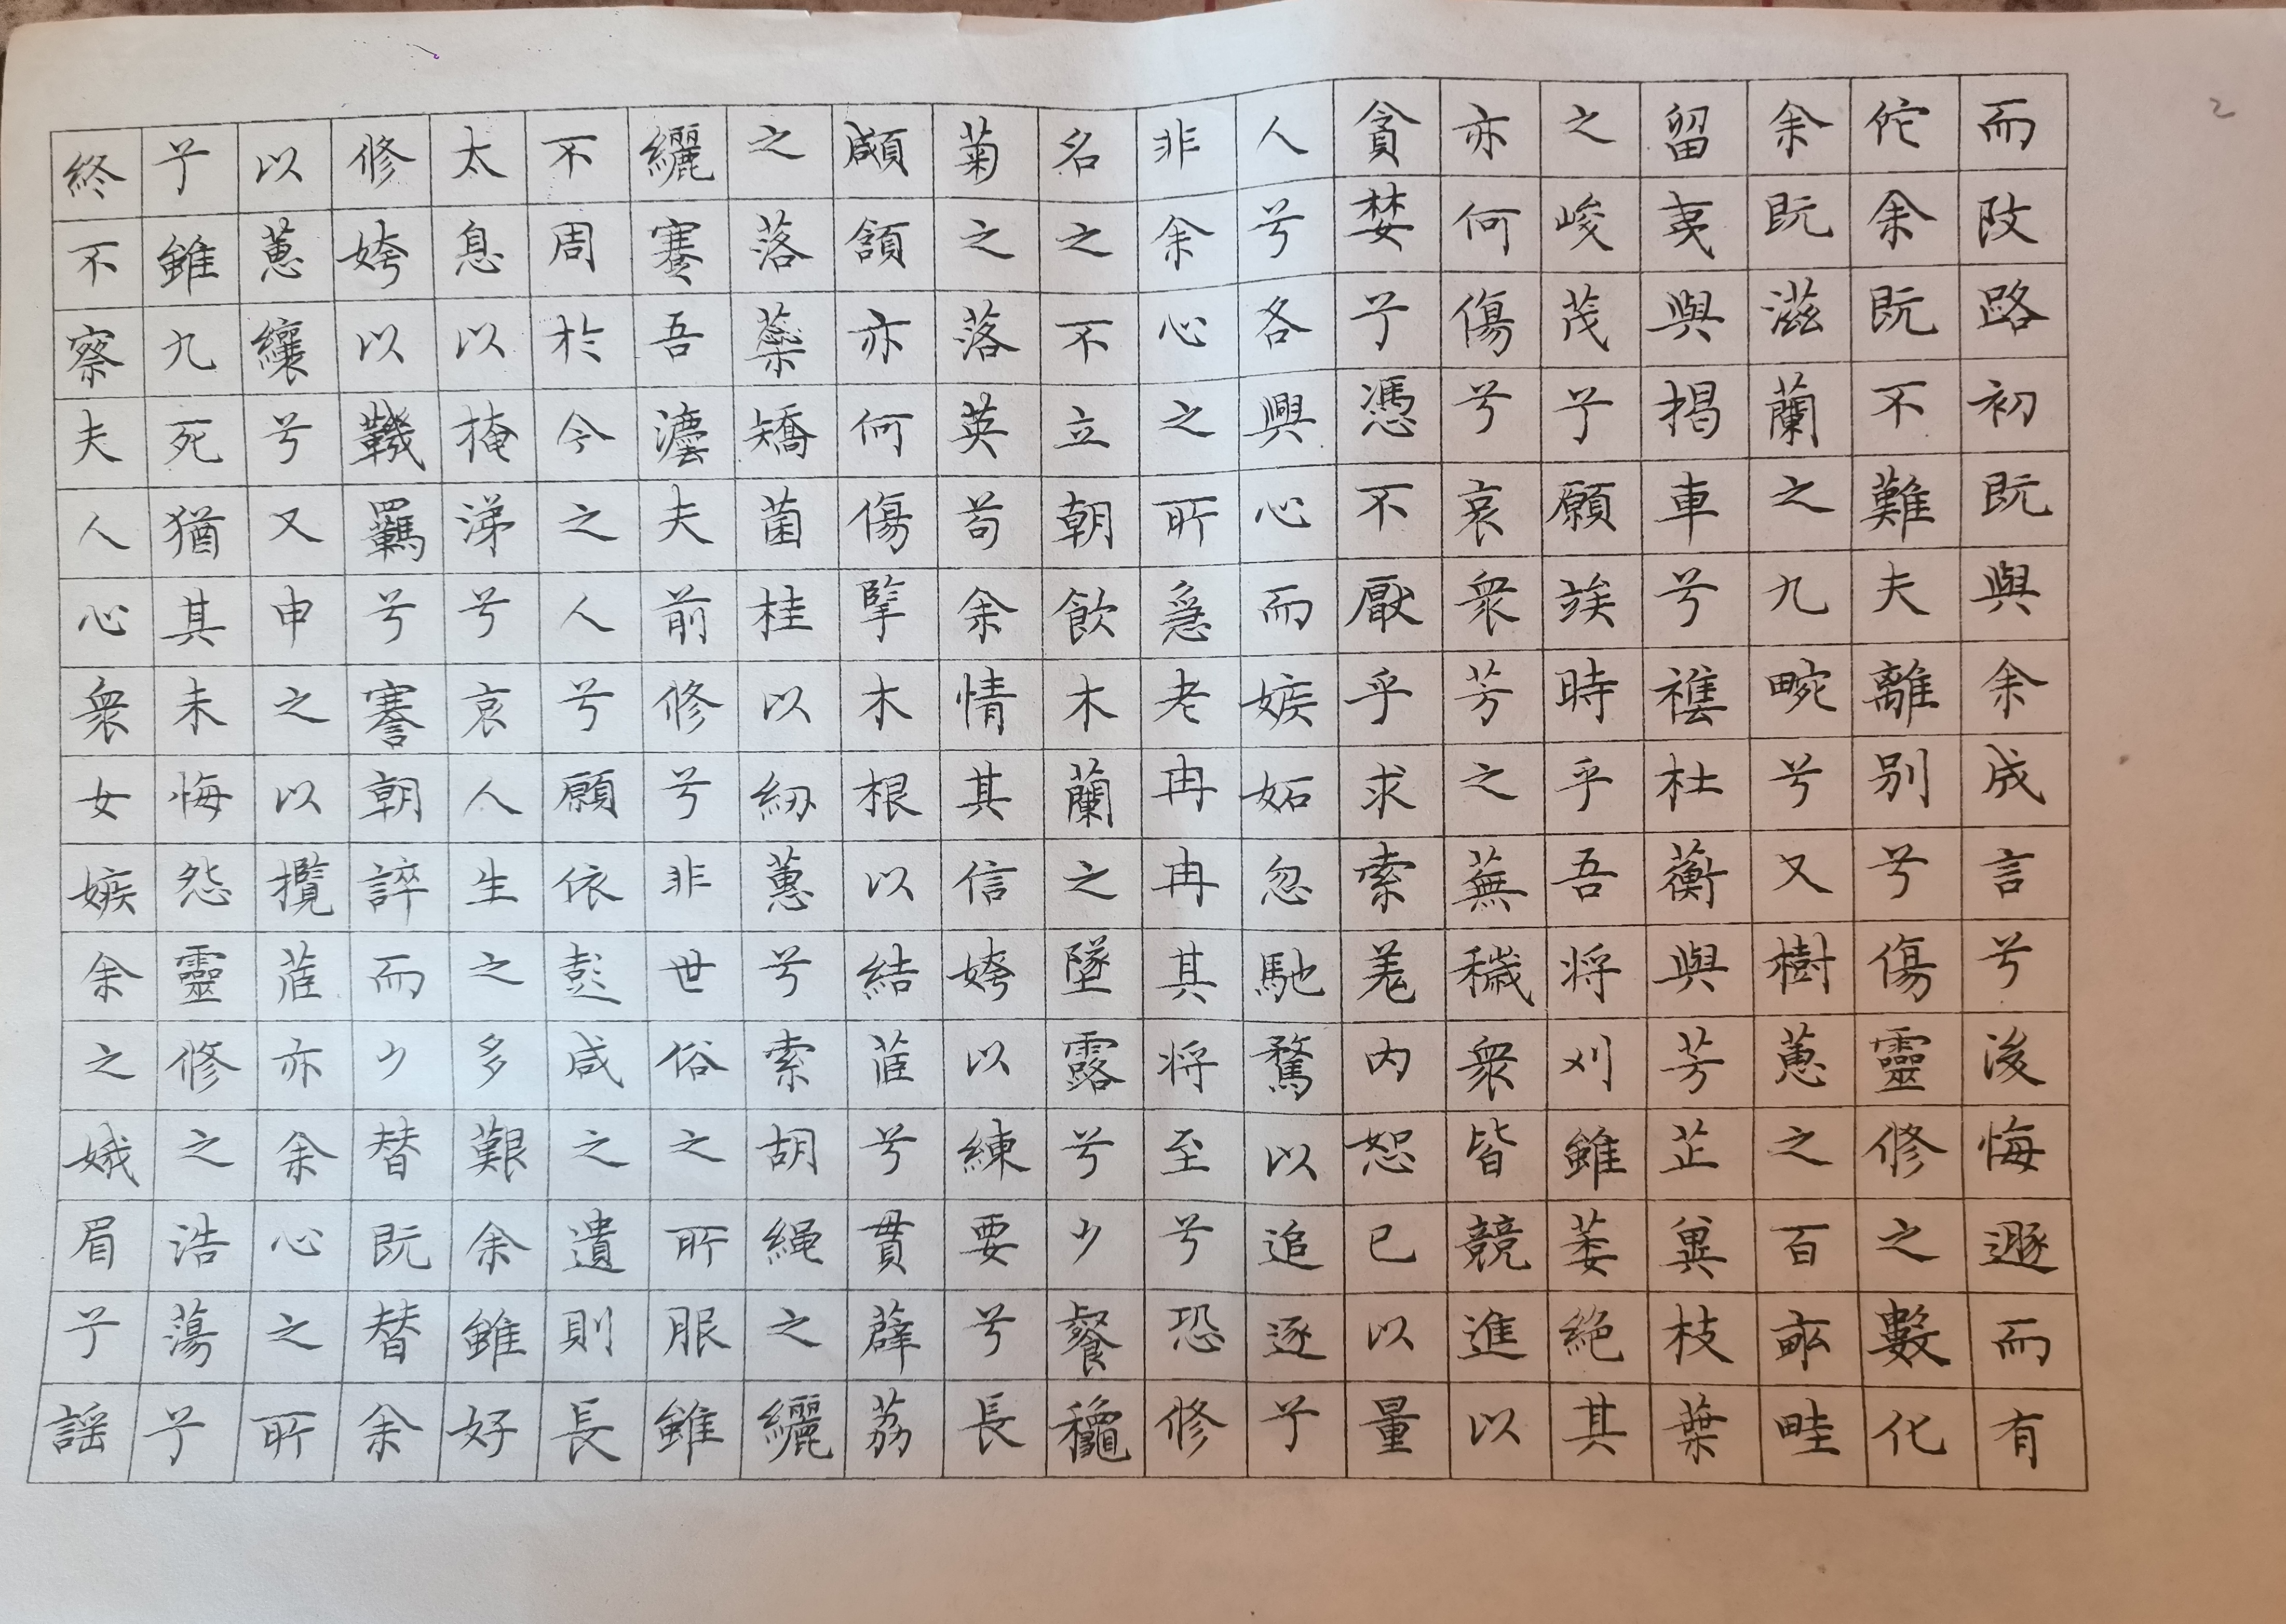 2
而改路初既與余成言兮後悔遯而有
佗余既不難夫離别兮傷靈修之數化
余既滋蘭之九畹兮又樹蕙之百畝畦
留夷與揭車兮襍杜蘅與芳芷冀枝葉
之峻茂兮願竢時乎吾将刈雖萎絕其
亦何傷兮哀衆芳之蕪穢衆皆競進以
貪婪兮憑不厭乎求索羗内恕己以量
人兮各興心而嫉妬忽馳騖以追逐兮
非余心之所急老冉冉其将至兮恐修
名之不立朝飲木蘭之墜露兮夕餐龝
菊之落英苟余情其信姱以練要兮長
顑頷亦何傷擥木根以結茝兮貫薜荔
之落蘂矯菌桂以紉蕙兮索胡繩之纚
纚謇吾灋夫前修兮非世俗之所服雖
不周於今之人兮願依彭咸之遺則長
太息以掩涕兮哀人生之多艱余雖好
修姱以鞿羈兮謇朝誶而夕替既替余
以蕙纕兮又申之以攬茝亦余心之所
兮雖九死猶其未悔怨靈修之浩蕩兮
終不察夫人心衆女嫉余之娥眉兮謡